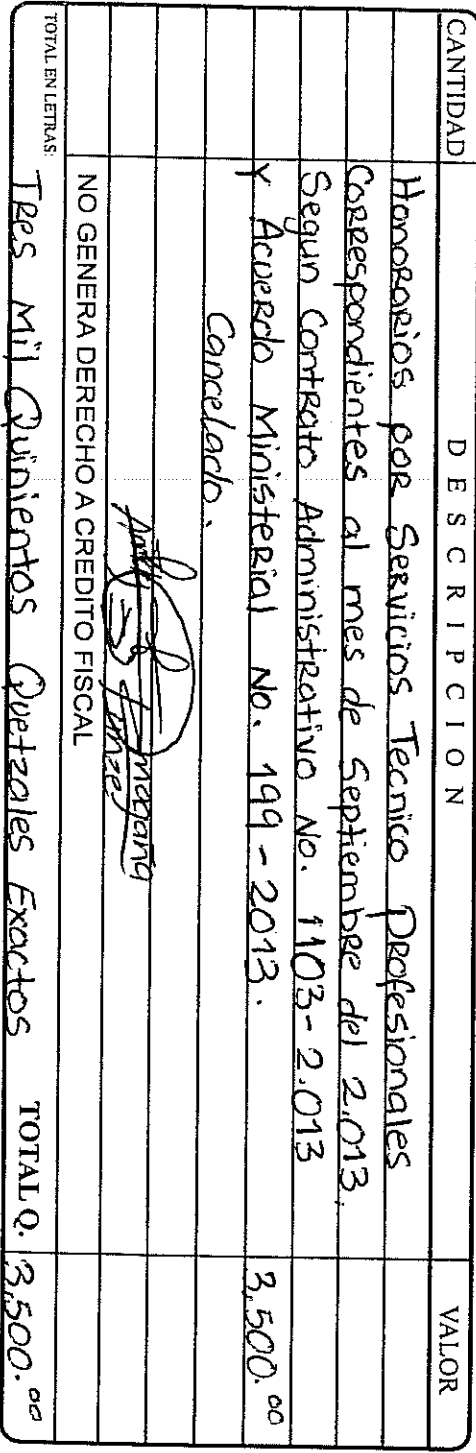 CANTIDAD DESCRIPCION VALOR
Honorarios por Servicios Tecnico Profesionales
Correspondientes al mes de Septiembre del 2,013.
Segun Contrato Administrativo No. 1103-2.013
Y Acuerdo Ministerial No. 199-2013. 3,500.00
Cancelado.
NO GENERA DERECHO A CREDITO FISCAL
TOTAL EN LETRAS: Tres Mil Quinientos Quetzales Exactos TOTAL Q. 3,500.00